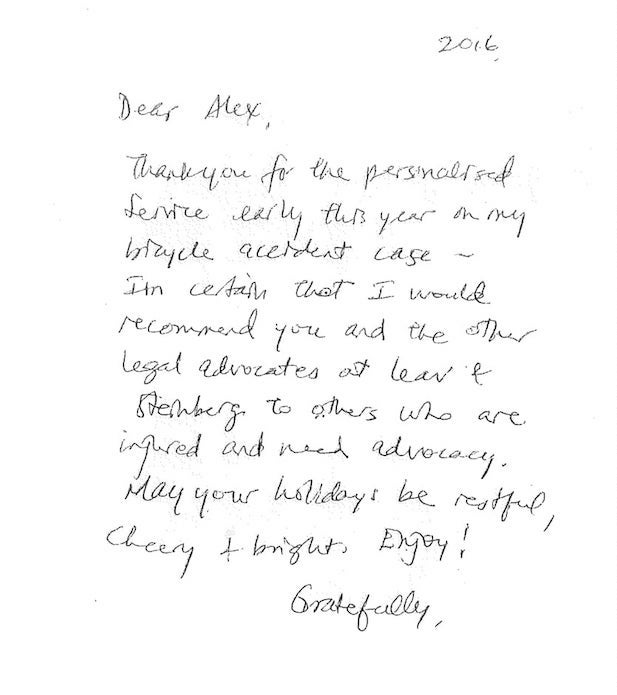 2016.
Dear Alex,
Thankyou for the personalised
Service early this year on my
bicycle accident case –
I'm certain that I would
recommend you and the other
legal advocates at Leav &
Steinberg to others who are
injured and need advocacy.
May your holidays be restful,
Cheery + bright. Enjoy!
Gratefully,